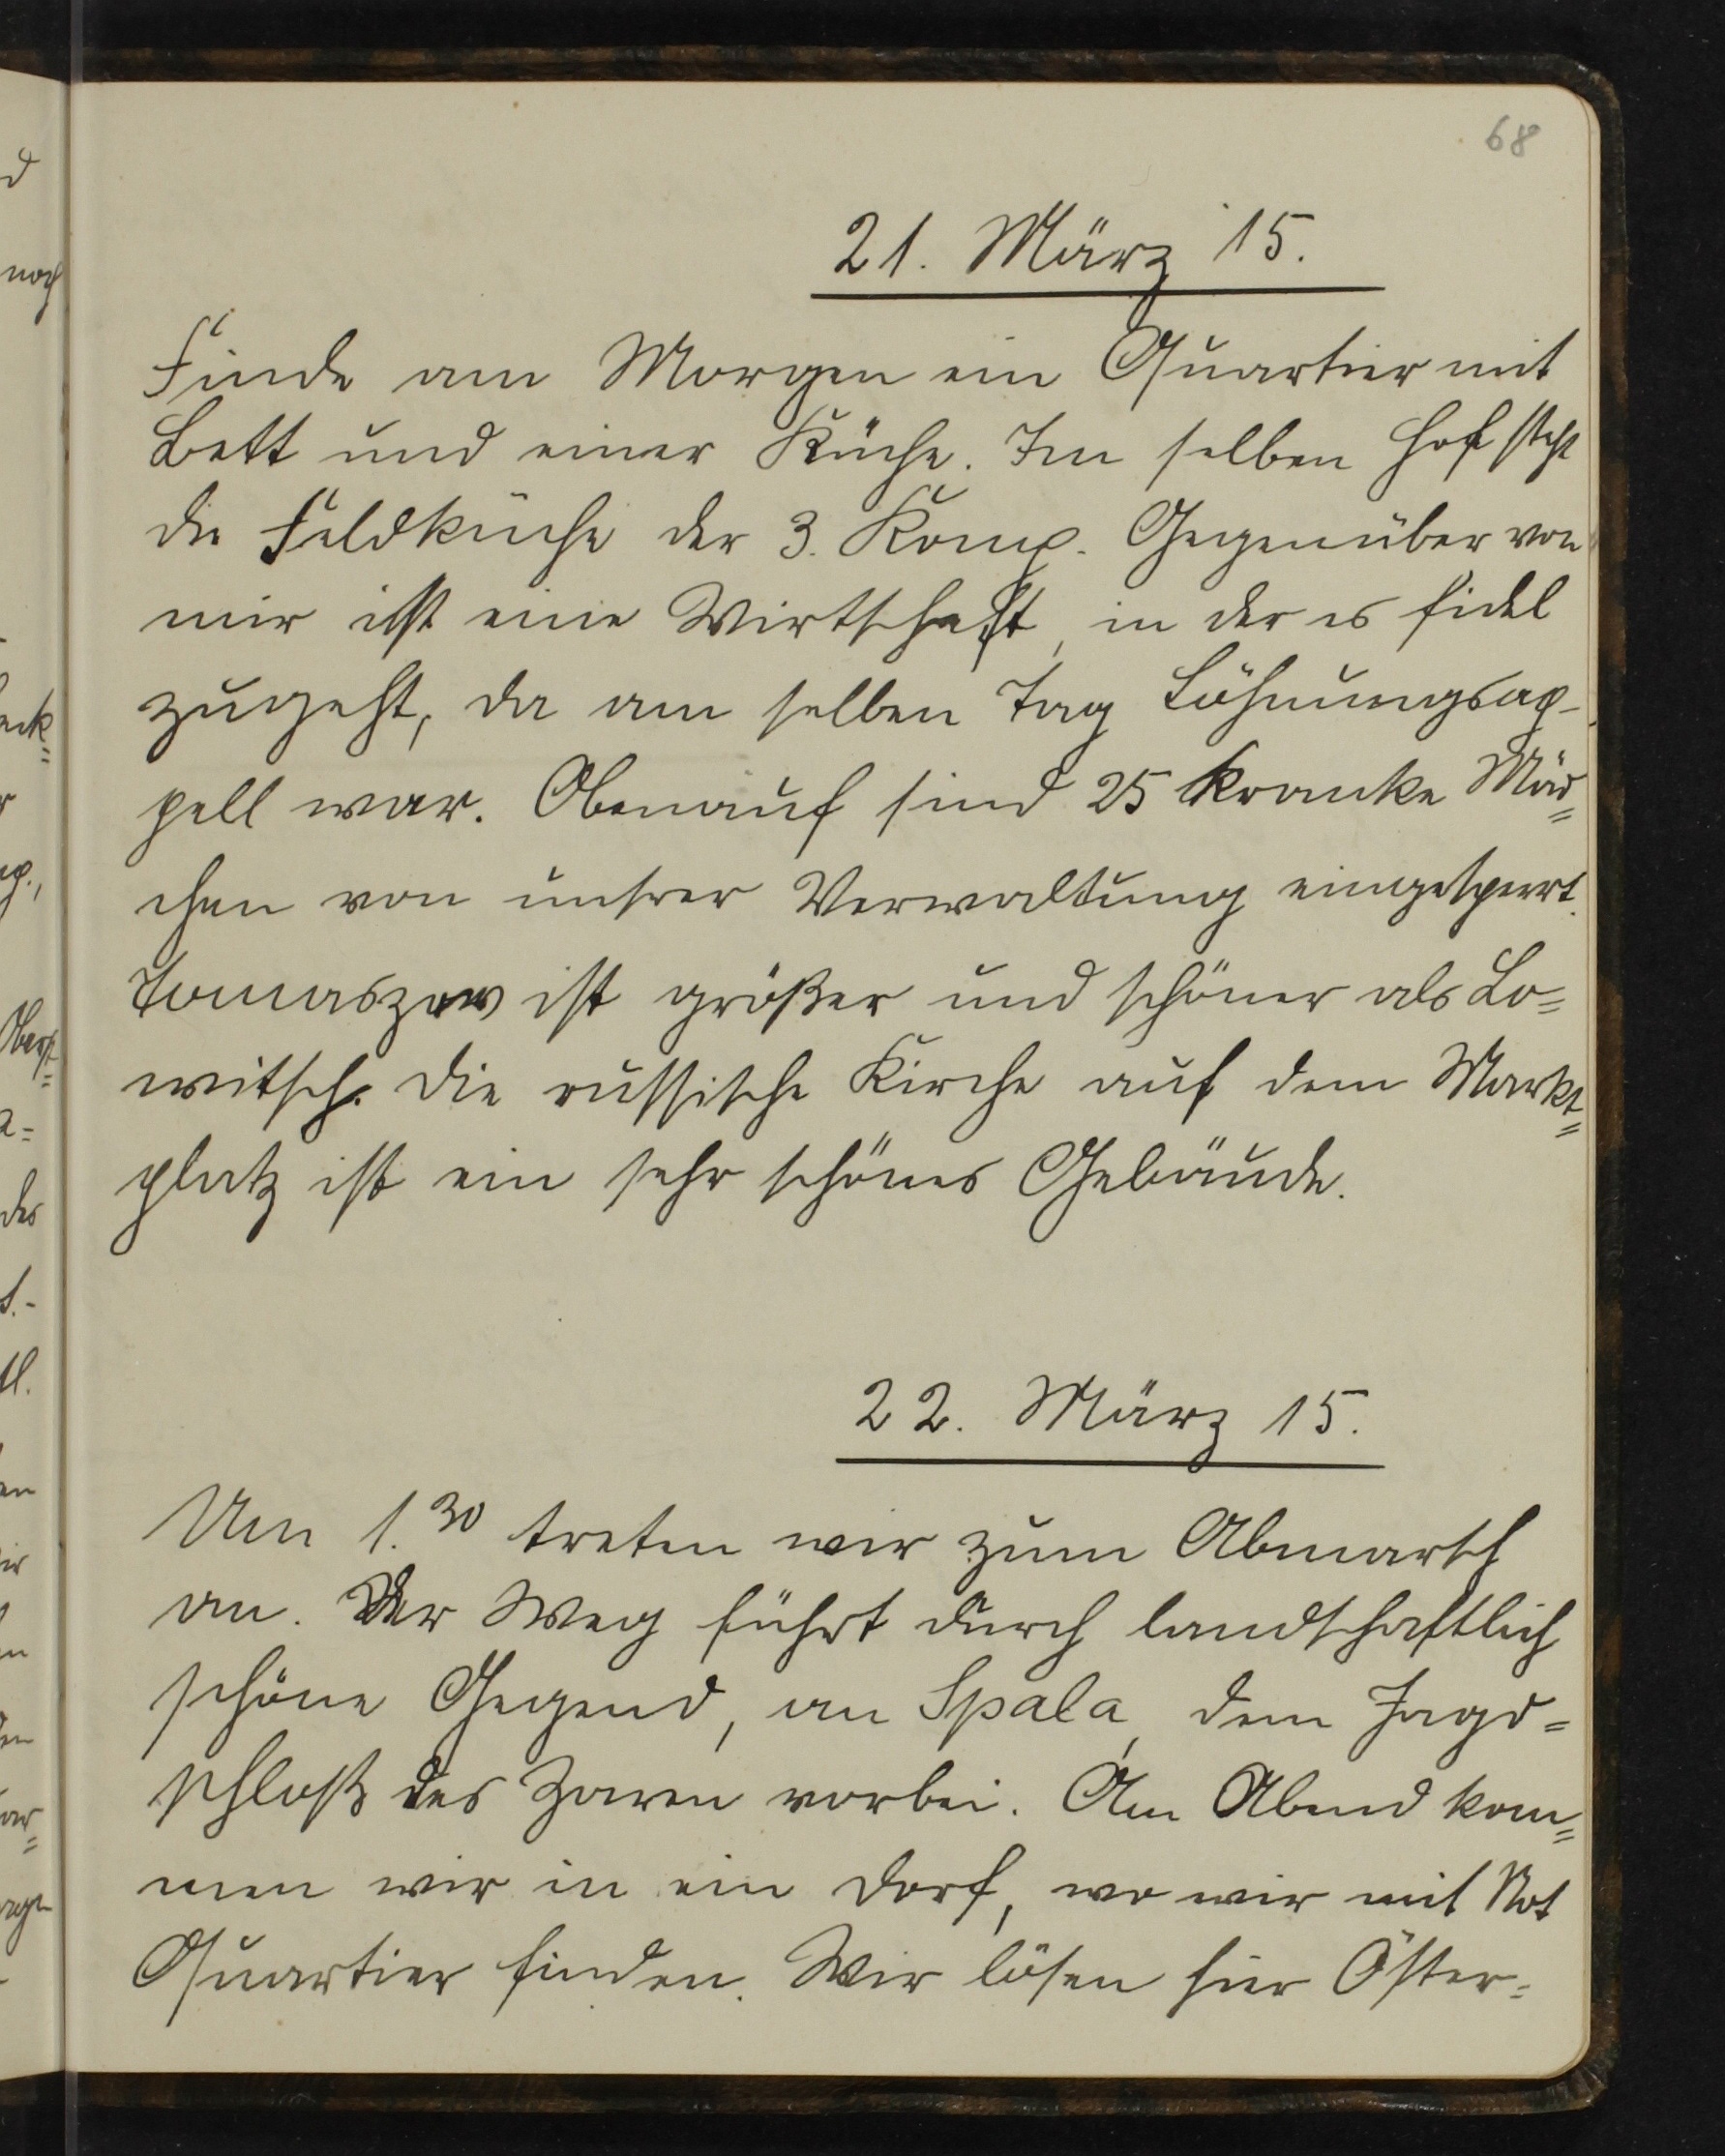 68
21. März 15.
Finde am Morgen ein Quartier mit
Bett und einer Küche. Im selben Hof steht
die Feldküche der 3. Komp. Gegenüber von
mir ist eine Wirtschaft, in der es fidel
zugeht, da am selben Tag Löhnungsap-
pell war. Obenauf sind 25 kranke Mäd=
chen von unsrer Verwaltung eingesperrt.
Tomaszow ist größer und schöner als Lo=
witsch. Die russische Kirche auf dem Markt=
platz ist ein sehr schönes Gebäude.
22. März 15.
Um 1.30 treten wir zum Abmarsch
an. Der Weg führt durch landschaftlich
schöne Gegend, an Spala, dem Jagd=
schloß des Zaren vorbei. Am Abend kom=
men wir in ein Dorf, wo wir mit Not
Quartier finden. Wir lösen hier Öster=